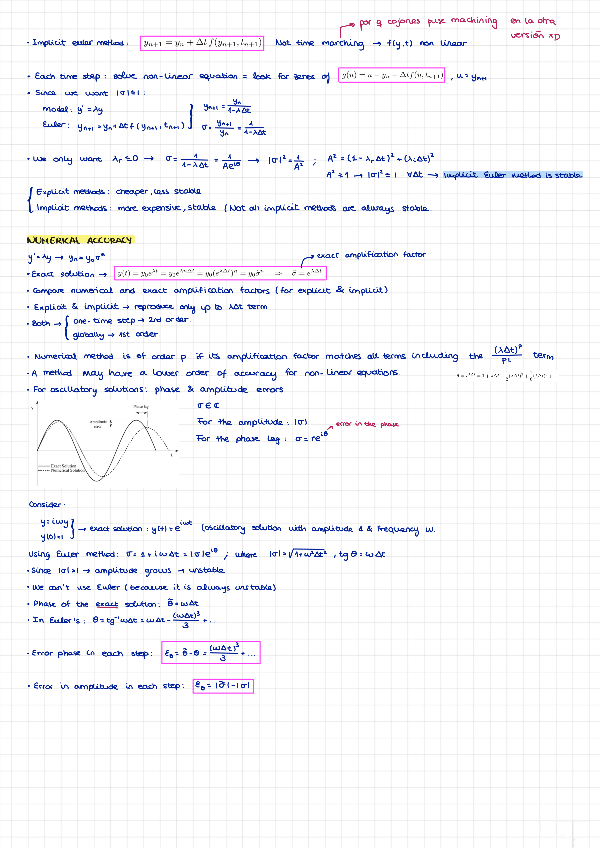 por q cojones puse machining en la otra
versión xD
• Implicit euler method: yₙ₊₁ = yₙ + Δt f(yₙ₊₁, tₙ₊₁) Not time marching → f(y,t) non linear
• Each time step: solve non-linear equation = look for zeros of g(u) = u − yₙ − Δt f(u, tₙ₊₁) , u = yₙ₊₁
• Since we want |σ| ≤ 1:
model: y' = λy
Euler: yₙ₊₁ = yₙ + Δt f(yₙ₊₁, tₙ₊₁)
yₙ₊₁ = yₙ/(1-λΔt)
σ = yₙ₊₁/yₙ = 1/(1-λΔt)
• We only want λᵣ ≤ 0 → σ = 1/(1-λΔt) = 1/(Ae^{iθ}) → |σ|² = 1/A² ; A² = (1 - λᵣΔt)² + (λᵢΔt)²
A² ≥ 1 → |σ|² ≤ 1 ∀Δt → Implicit Euler method is stable
Explicit methods: cheaper, less stable
Implicit methods: more expensive, stable (Not all implicit methods are always stable
NUMERICAL ACCURACY
y' = λy → yₙ = y₀σⁿ
exact amplification factor
• Exact solution → y(t) = y₀e^{λt} = y₀e^{λnΔt} = y₀(e^{λΔt})ⁿ = y₀σ̃ⁿ ⇒ σ̃ = e^{λΔt}
• Compare numerical and exact amplification factors (for explicit & implicit)
• Explicit & implicit → reproduce only up to λΔt term
• Both → { one-time step → 2nd order
globally → 1st order
• Numerical method is of order p if its amplification factor matches all terms including the (λΔt)^p/p! term
• A method may have a lower order of accuracy for non-linear equations.
• For oscillatory solutions: phase & amplitude errors
Phase lag
error
Amplitude
error
Exact Solution
Numerical Solution
σ ∈ ℂ
For the amplitude: |σ|
error in the phase
For the phase lag: σ = re^{iθ}
Consider:
y' = iωy
y(0) = 1
→ exact solution: y(t) = e^{iωt} (oscillatory solution with amplitude 1 & frequency ω.
Using Euler method: σ = 1 + iωΔt = |σ|e^{iθ} ; where |σ| = √(1+ω²Δt²) , tg θ = ωΔt
• Since |σ| > 1 → amplitude grows → unstable
• We can't use Euler (because it is always unstable)
• Phase of the exact solution: θ̃ = ωΔt
• In Euler's: θ = tg⁻¹ωΔt = ωΔt - (ωΔt)³/3 + ..
• Error phase in each step: ε_θ = θ̃ - θ = (ωΔt)³/3 + ...
• Error in amplitude in each step: ε_θ = |σ̃| - |σ|